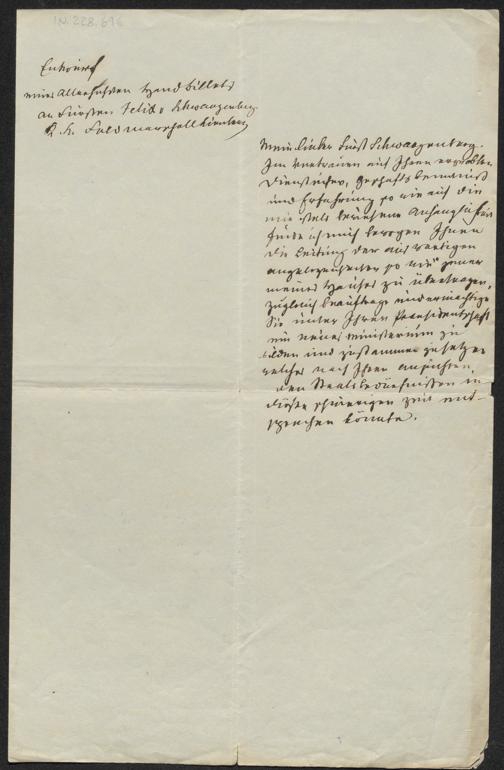 IN. 228.696
Entwurf
eines Allerhöchsten Handbillets
an Fürsten Felix v Schwarzenberg
K. K. Feldmarschall Lieutenant
Mein lieber Fürst Schwarzenberg.
Im Vertrauen auf Ihren erprobten
Diensteifer, Geschäftskenntniß
und Erfahrung so wie auf die
mir stets bewiesene Anhänglichkeit
finde ich mich bewogen Ihnen
die Leitung der auswärtigen
Angelegenheiten so wie jener
meines Hauses zu übertragen,
zugleich beauftrage und ermächtige
Sie unter Ihrer Praesidentschaft
ein neues Ministerium zu
bilden und zusammen zu setzen
welches nach Ihren Ansichten,
den Staatsbedürfnissen in
dieser schwierigen Zeit ent-
sprechen könnte.